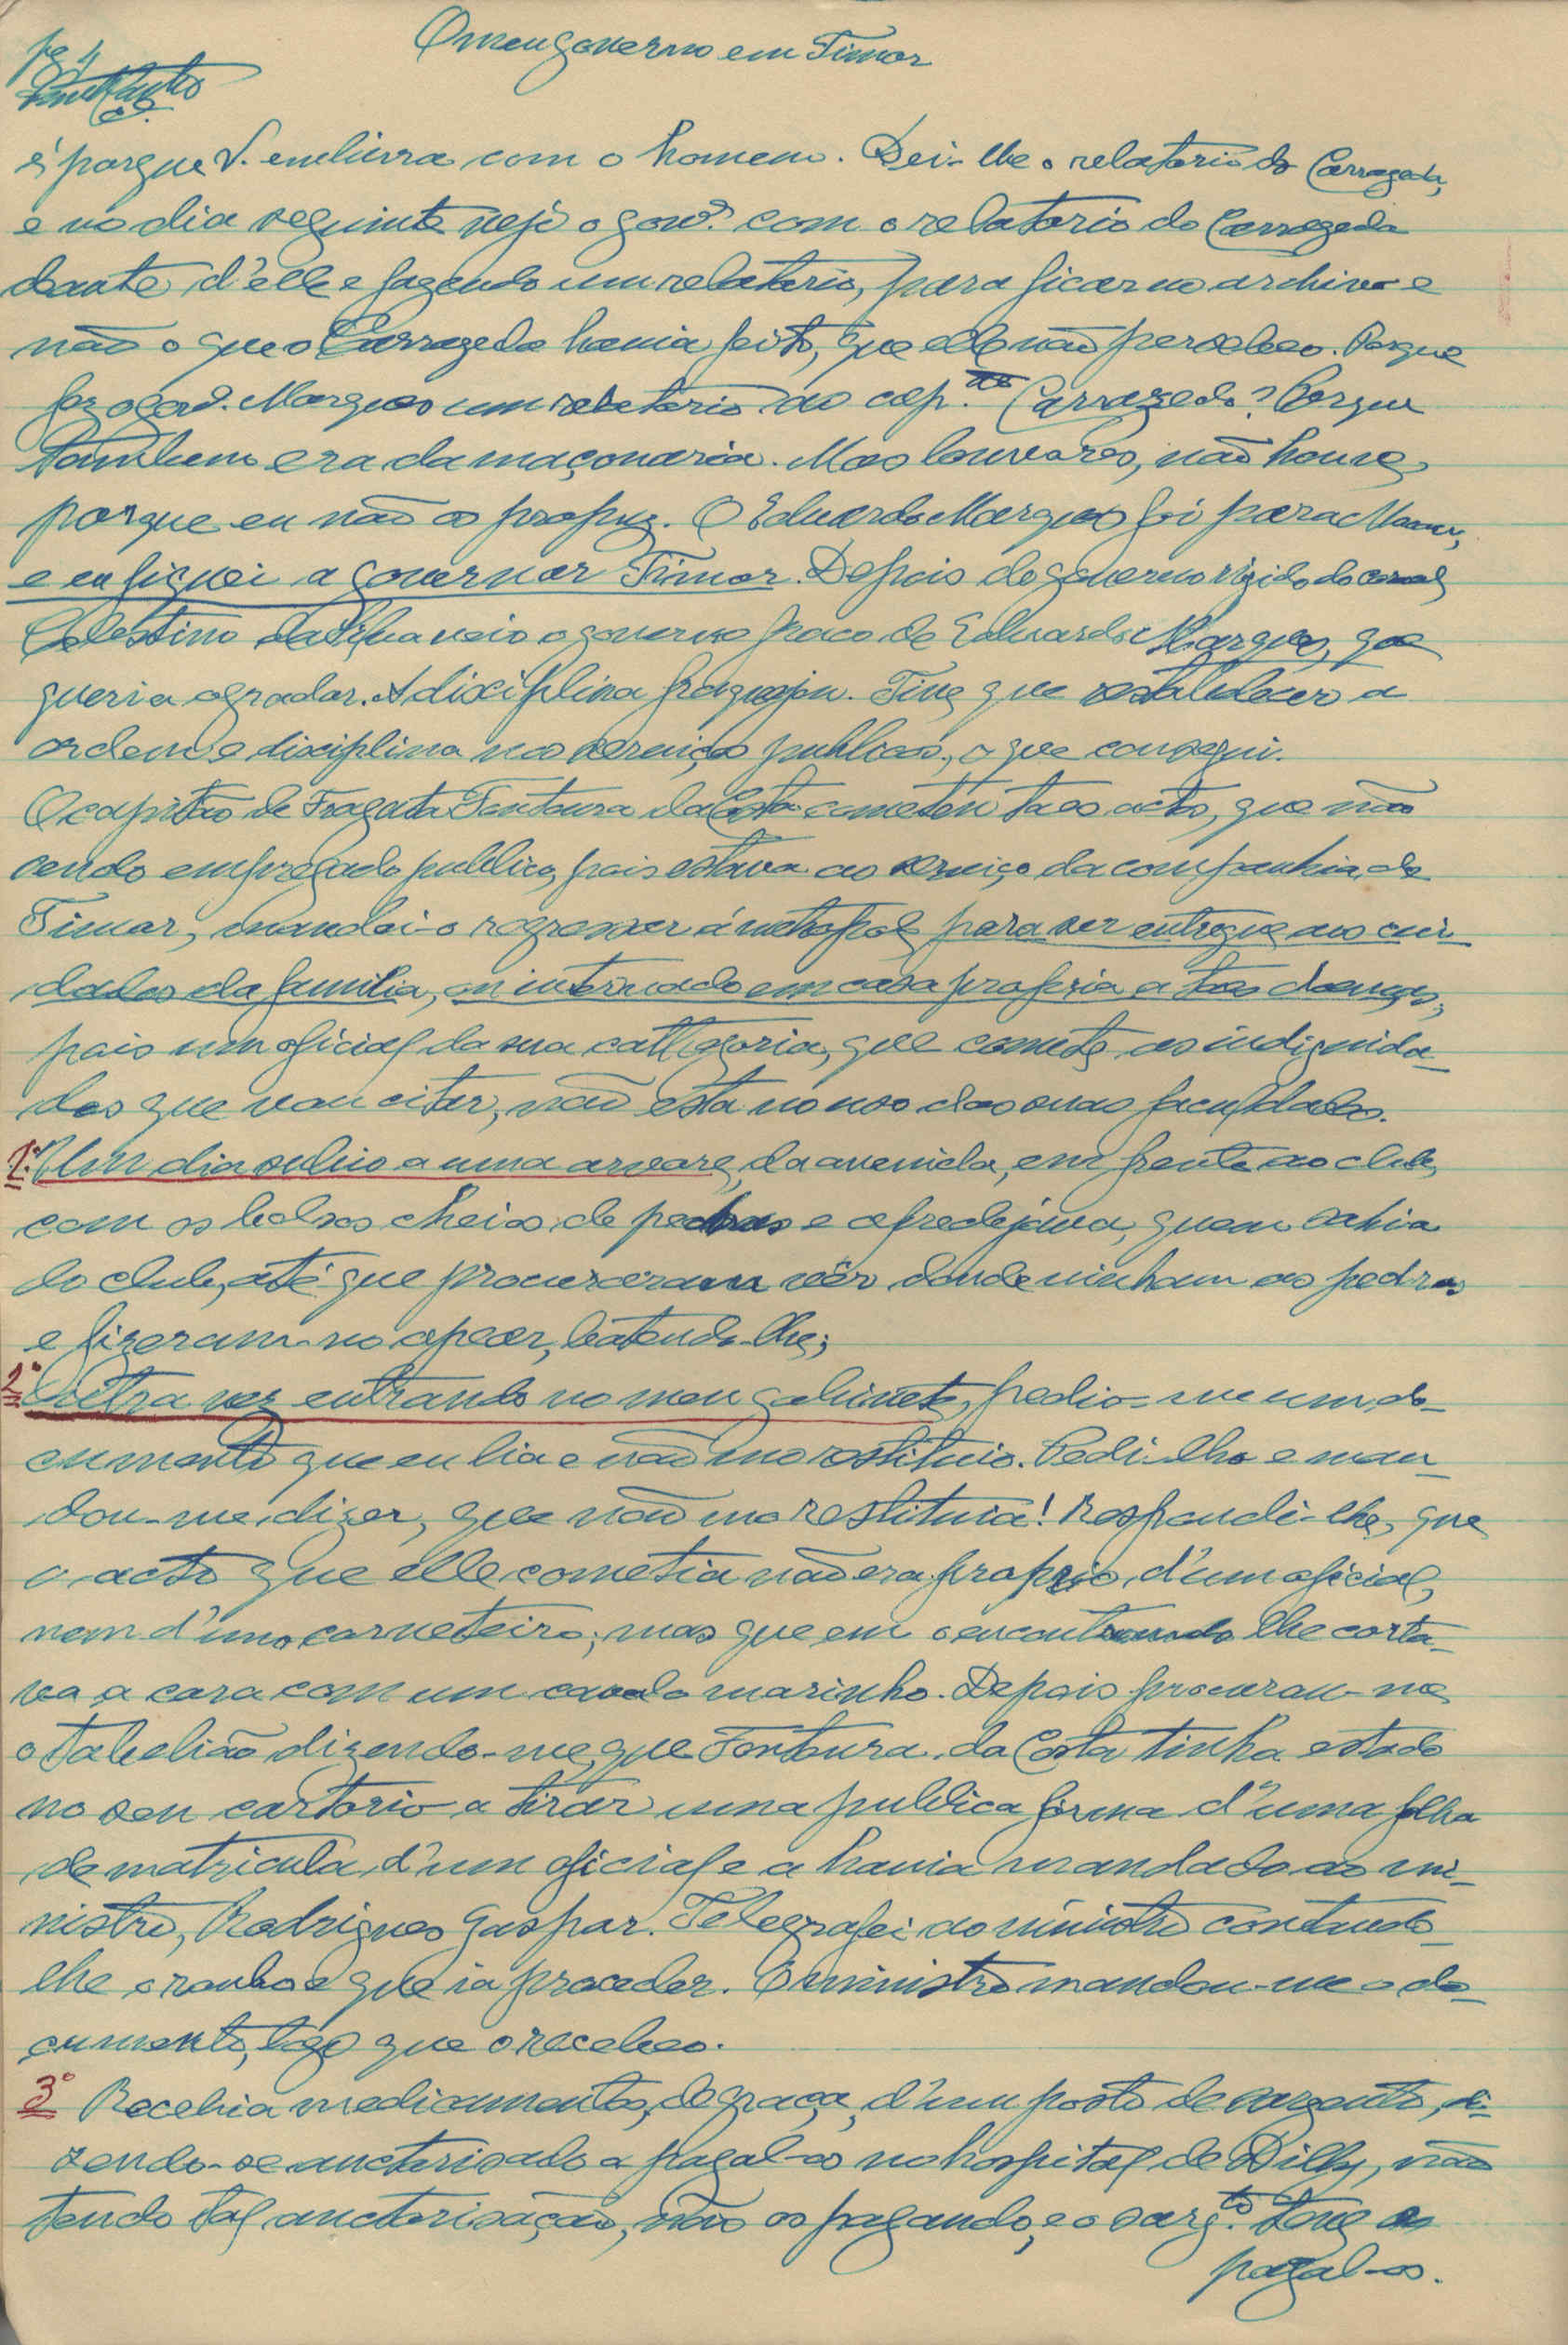 O meu governo em Timor
pg 4
é porque V. embirra com o homem. Dei-lhe o relatorio do Carrazeda,
e no dia seguinte vejo o gov.or com o relatorio do Carrazeda
deante d'elle e fazendo um relatorio, para ficar no archivo e
não o que o Carrazeda havia feito, que elle não percebeo. Porque
fez o gov.or Marques um relatorio ao cap.ão Carrazeda? Porque
tambem era da maçonaria. Mas louvores, não houve,
porque eu não os propuz. O Eduardo Marques foi para Macau,
e eu fiquei a governar Timor. Depois do governo rigido do coronel
Celestino da Silva veio o governo fraco de Eduardo Marques, que
queria agradar. A disciplina fraquejou. Tive que restabelecer a
ordem e disciplina nos serviços publicos, o que consegui.
O capitão de Fragata Fontoura da Costa cometeu taes actos, que não
sendo empregado publico, pois estava ao serviço da companhia de
Timor, mandei-o regressar á metropole para ser entregue aos cui-
dados da familia, ou internado em casa propria a taes doenças,
pois um oficial da sua cathegoria, que comete as indignida-
des que vou citar, não está no uso das suas faculdades.
1.º Um dia subio a uma arvore, da avenida, em frente ao club,
com os bolsos cheios de pedras e apredejava, quem sahia
do club, até que procuraram vêr donde vinham as pedras
e fizeram-no apear, batendo-lhe;
2.º Outra vez entrando no meu gabinete, pedio-me um do-
cumento que eu lia e não mo restituio. Pedi-lho e man-
dou-me dizer, que não mo restituia! Respondi-lhe, que
o acto que elle cometia não era proprio, d'um oficial,
nem d'um corneteiro; mas que em o encontrando lhe corta-
va a cara com um cavalo marinho. Depois procurou-me
o Tabelião dizendo-me, que Fontoura da Costa tinha estado
no seu cartorio a tirar uma publica forma d'uma folha
de matricula d'um oficial e a havia mandado ao mi-
nistro, Rodrigues Gaspar. Telegrafei ao ministro contando-
lhe o roubo e que ia proceder. O ministro mandou-me o do-
cumento, logo que o recebeo.
3º Recebia medicamentos, de graça, d'um posto de sargento, di-
zendo-se auctorisado a pagal-os no hospital de Dilly, não
tendo tal auctorisação, não os pagando, e o sarg.to teve
pagal-os.